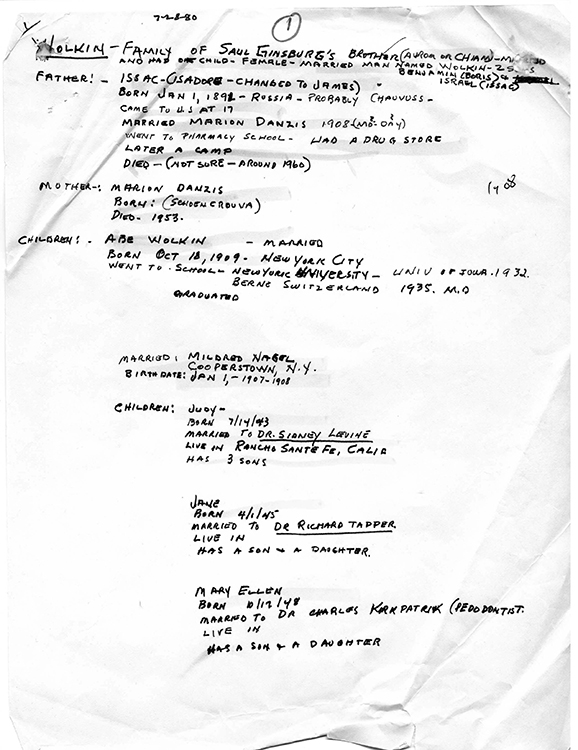 7-28-80
1
WOLKIN - FAMILY OF SAUL GINSBURG'S BROTHER (AVROM OR CHIAM) -
AND HAD ONE CHILD - FEMALE - MARRIED MAN NAMED WOLKIN - 2 SONS
BENJAMIN (BORIS) &
ISRAEL (ISSAC)
FATHER: - ISSAC - (ISADORE - CHANGED TO JAMES)
BORN JAN 1, 1892 - RUSSIA - PROBABLY CHAVUSS -
CAME TO U.S AT 17
MARRIED MARION DANZIS 1908 (MO? DAY?)
WENT TO PHARMACY SCHOOL - HAD A DRUG STORE
LATER A CAMP
DIED - (NOT SURE - AROUND 1960)
1908
MOTHER -: MARION DANZIS
BORN: (SCHOENCROUVA)
DIED - 1953.
CHILDREN: - ABE WOLKIN - MARRIED
BORN OCT 18, 1909 - NEW YORK CITY
WENT TO SCHOOL - NEW YORK UNIVERSITY - UNIV OF IOWA. 1932.
BERNE SWITZERLAND 1935. M.D
GRADUATED
MARRIED: MILDRED NAGEL
COOPERSTOWN, N.Y.
BIRTHDATE: JAN 1, - 1907-1908
CHILDREN: JUDY -
BORN 7/14/43
MARRIED TO DR. SIDNEY LEVINE
LIVE IN RANCHO SANTE FE, CALIF
HAS 3 SONS
JANE
BORN 4/1/45
MARRIED TO DR RICHARD TAPPER
LIVE IN
HAS A SON & A DAUGHTER.
MARY ELLEN
BORN 10/17/48
MARRIED TO DR CHARLES KIRKPATRICK (PEDODONTIST.
LIVE IN
HAS A SON & A DAUGHTER